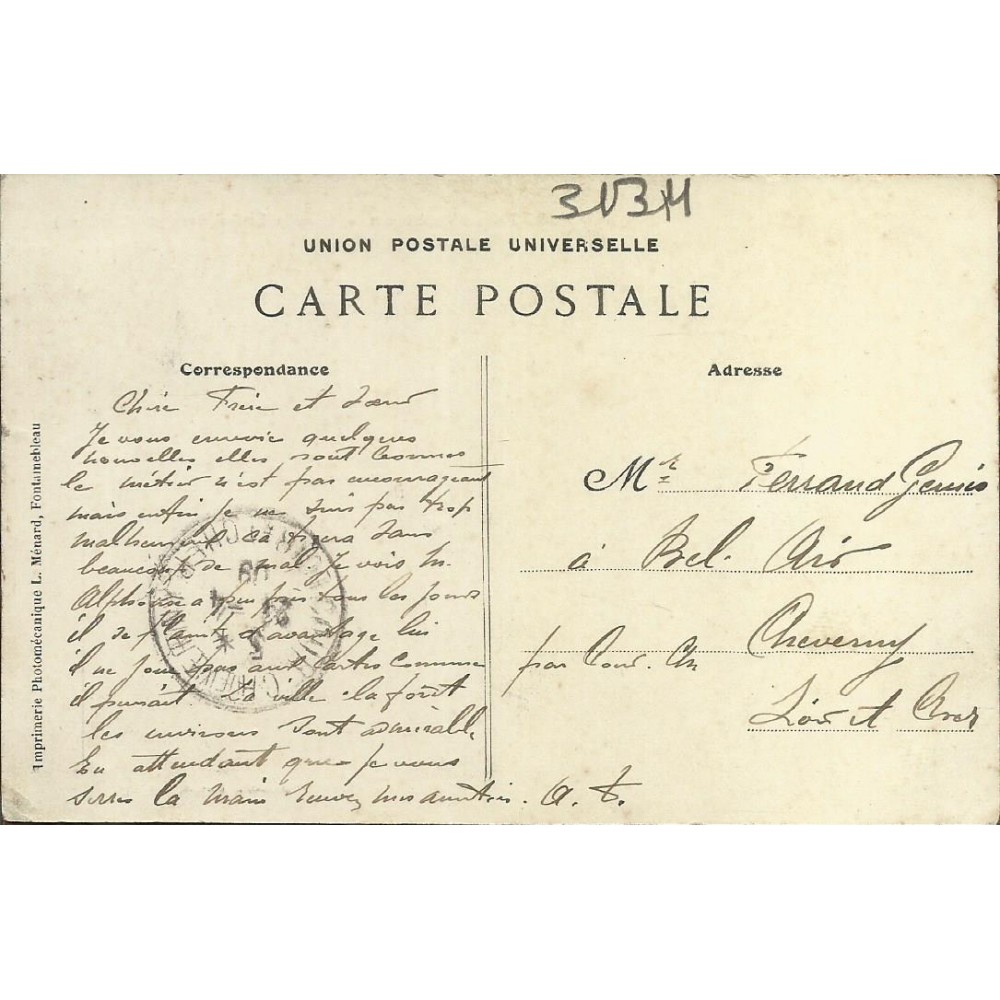 UNION POSTALE UNIVERSELLE
CARTE POSTALE
Correspondance
Adresse
Imprimerie Photomécanique L. Ménard, Fontainebleau
Chère Frère et Sœur
Je vous envoie quelques
nouvelles elles sont bonnes
le métier n'est pas encourageant
mais enfin je ne suis pas trop
malheureux dans
beaucoup de mal Je vois M.
Alphonse a peu près tous les jours
il d'avantage lui
il ne joue pas aux cartes comme
il la ville la forêt
les environs sont admirable
En attendant que je vous
serre la main mes amitiés. A. F.
Mr Ferrand
à Bel. Air
Cheverny
par Cour. Ch
Loir et Cher